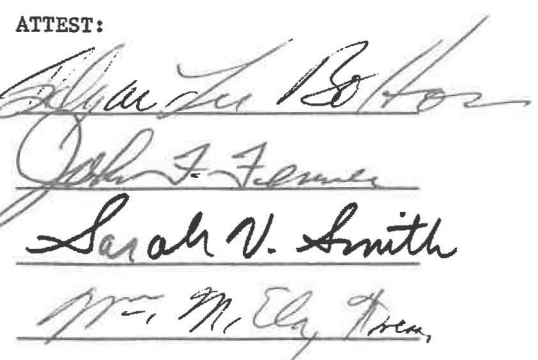 ATTEST:
Edgar Lee Bolton
John F. Fenner
Sarah V. Smith
Wm. M. Ely,